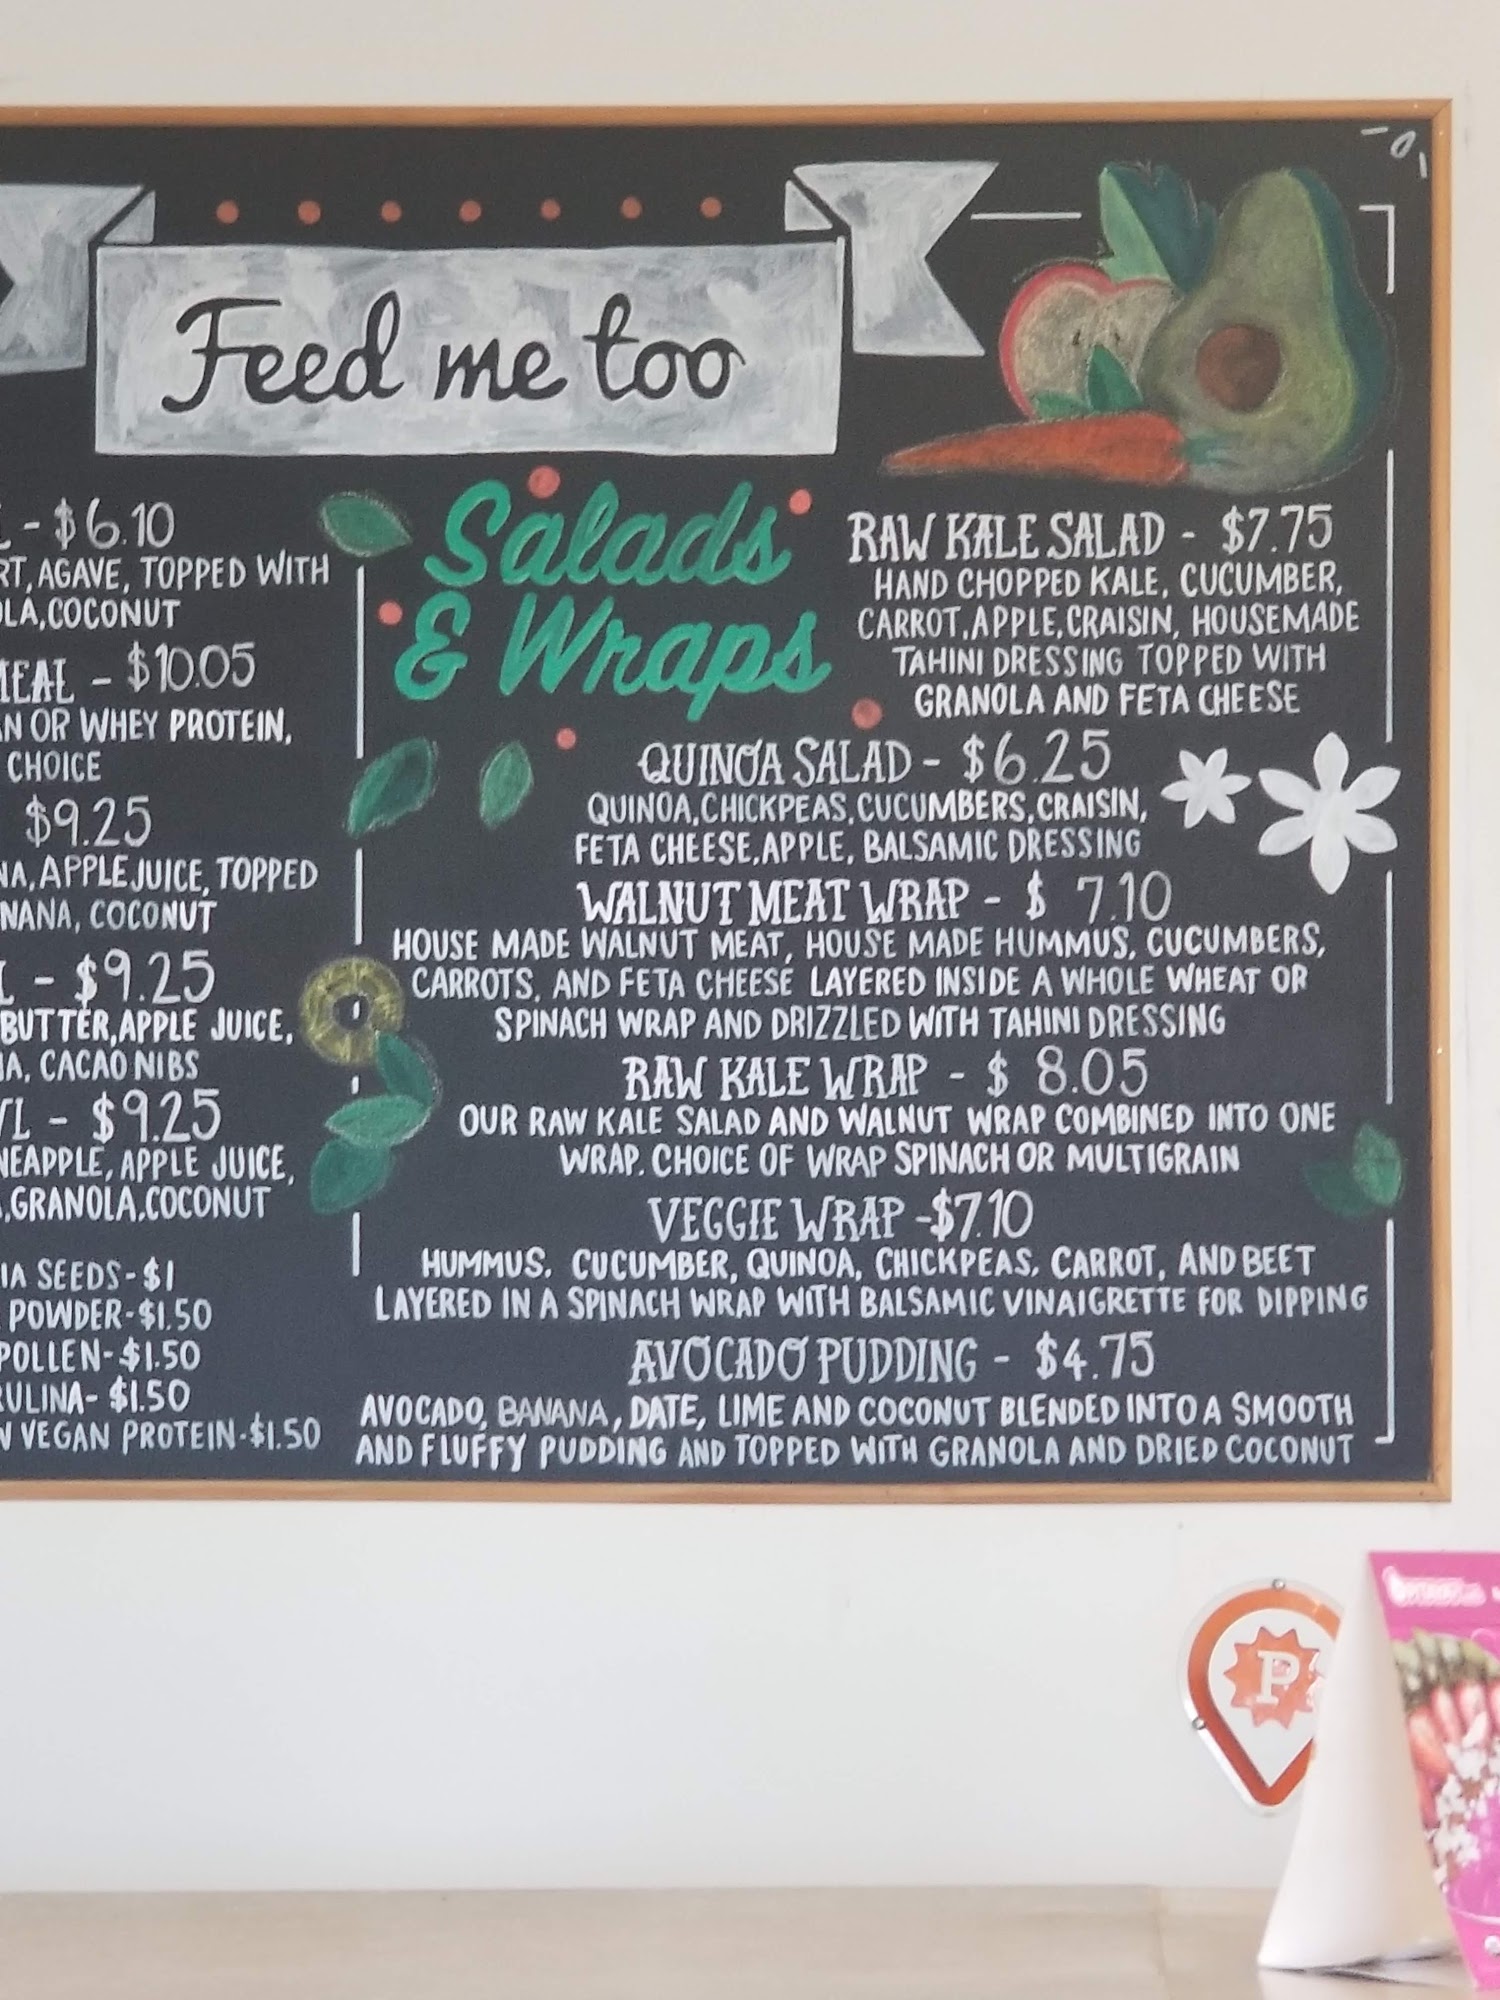 Feed me too
- $6.10
AGAVE, TOPPED WITH
COCONUT
- $10.05
OR WHEY PROTEIN,
CHOICE
$9.25
APPLE JUICE, TOPPED
COCONUT
- $9.25
BUTTER, APPLE JUICE,
CACAO NIBS
- $9.25
APPLE JUICE,
GRANOLA, COCONUT
SEEDS - $1
POWDER - $1.50
POLLEN - $1.50
$1.50
VEGAN PROTEIN - $1.50
Salads
& Wraps
RAW KALE SALAD - $7.75
HAND CHOPPED KALE, CUCUMBER,
CARROT, APPLE, CRAISIN, HOUSEMADE
TAHINI DRESSING TOPPED WITH
GRANOLA AND FETA CHEESE
QUINOA SALAD - $6.25
QUINOA, CHICKPEAS, CUCUMBERS, CRAISIN,
FETA CHEESE, APPLE, BALSAMIC DRESSING
WALNUT MEAT WRAP - $ 7.10
HOUSE MADE WALNUT MEAT, HOUSE MADE HUMMUS, CUCUMBERS,
CARROTS, AND FETA CHEESE LAYERED INSIDE A WHOLE WHEAT OR
SPINACH WRAP AND DRIZZLED WITH TAHINI DRESSING
RAW KALE WRAP - $ 8.05
OUR RAW KALE SALAD AND WALNUT WRAP COMBINED INTO ONE
WRAP. CHOICE OF WRAP SPINACH OR MULTIGRAIN
VEGGIE WRAP - $7.10
HUMMUS, CUCUMBER, QUINOA, CHICKPEAS, CARROT, AND BEET
LAYERED IN A SPINACH WRAP WITH BALSAMIC VINAIGRETTE FOR DIPPING
AVOCADO PUDDING - $4.75
AVOCADO, BANANA, DATE, LIME AND COCONUT BLENDED INTO A SMOOTH
AND FLUFFY PUDDING AND TOPPED WITH GRANOLA AND DRIED COCONUT
P